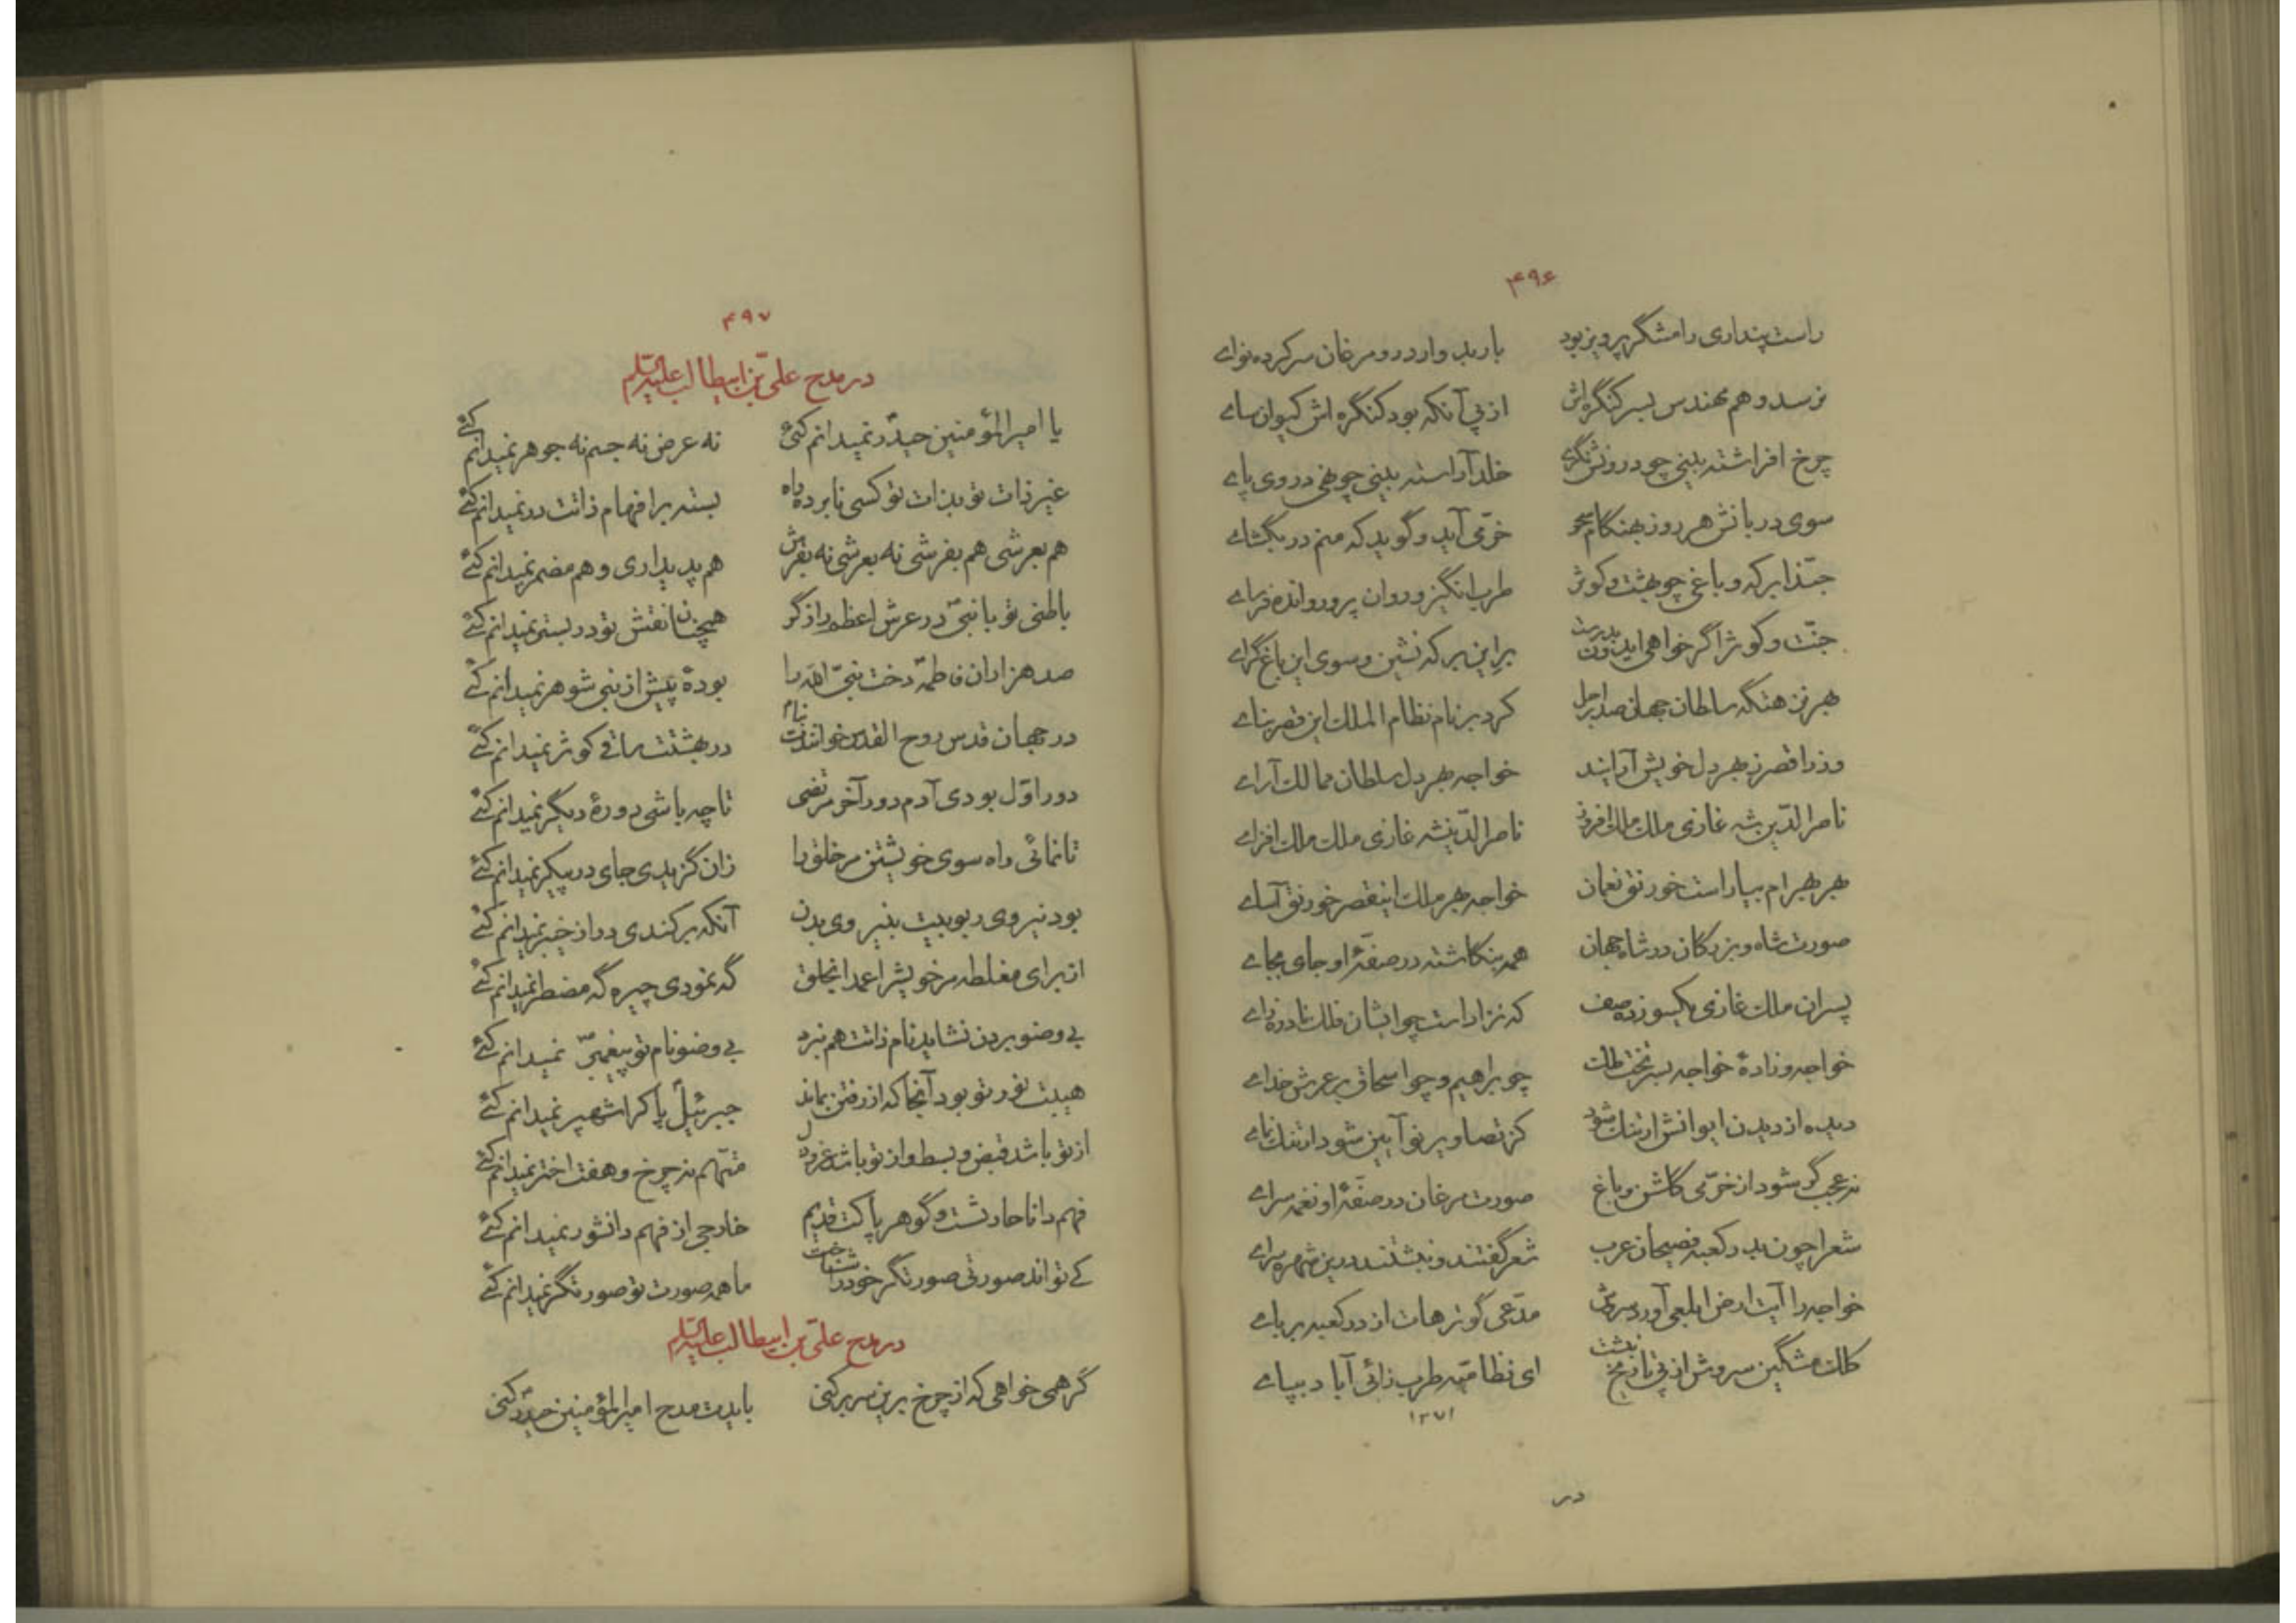 ۴۹۶
راست پنداری رامشگر پرویز بود باربد وار درو مرغان سرکرده نوای
نرسد وهم مهندس بسر کنگره‌اش از پی آنکه بود کنگره اش کیوان سای
چرخ افراشته بینی چو در و نگری خلد آراسته بینی چو نهی در وی پای
سوی دربانش هر روز بهنگام سحر خرّمی آید و گوید که منم در بگشای
حبّذا برکه و باغی چو بهشت و کوثر طرب انگیز و روان پرور و انده فرسای
جنّت و کوثر اگر خواهی ایدون بدرست بر این برکه نشین و سوی این باغ گرای
بهر نزهتگه سلطان جهان صدر اجل کرد بر نام نظام الملک این قصر بنای
وزرا قصر ز بهر دل خویش آرایند خواجه بهر دل سلطان ممالک آرای
ناصر الدّین شه غازی ملک ملک افروز ناصر الدّین شه غازی ملک ملک افزای
بهر بهرام بیاراست خورنق نعمان خواجه بهر ملک اینقصر خورنق آسای
صورت شاه و بزرگان در شاه جهان همه بنگاشته در صفّهٔ او جای بجای
پسران ملک غازی یکسو زده صف که نزاد است چو ایشان فلک نادره زای
خواجه و زادهٔ خواجه بسر تخت ملک چو براهیم و چو اسحاق بر عرش خدای
دیده از دیدن ایوانش ارتنگ شود کز تصاویر نو آیین شود ارتنگ نمای
نه عجب گر شود از خرّمی کاشن و باغ صورت مرغان در صفّهٔ او نغمه سرای
شعرا چون بدر کعبه فصیحان عرب شعر گفتند و نبشتند درین شهره سرای
خواجه را آیت ارض ابلعی آورد سروش مدّعی گو ترهات از در کعبه بربای
کلک مشگین سروش از پی تاریخ نبشت ای نظامیّه طرب زائی آباد بپای
۱۲۷۱
در
۴۹۷
در مدح علیّ بن ابیطالب علیه السّلام
یا امیر المؤمنین حیدر نمیدانم کئی نه عرض نه جسم نه جوهر نمیدانم کئی
غیر ذات تو بذات تو کسی نابرده راه بسته بر افهام ذاتت در نمیدانم کئی
هم بعرشی هم بفرشی نه بعرشی نه بفرش هم پدیداری و هم مضمر نمیدانم کئی
باطنی تو با نبیّ در عرش اعظم راز گر همچنان نقش تو در بستر نمیدانم کئی
صد هزاران فاطمه دخت نبیّ الله را بودهٔ پیش از نبی شوهر نمیدانم کئی
در جهان قدس روح القدس خوانندت بنام در بهشتت ساقی کوثر نمیدانم کئی
دور اوّل بودی آدم دور آخر مرتضی تا چه باشی دورهٔ دیگر نمیدانم کئی
تا نمائی راه سوی خویشتن مر خلق را زان گزیدی جای در پیکر نمیدانم کئی
بود نیروی ربوبیت بنیروی بدن آنکه برکندی در از خیبر نمیدانم کئی
از برای مغلطه مر خویشرا عمدا بخلق گه نمودی چیره گه مضطر نمیدانم کئی
بی وضو بردن نشاید نام ذاتت هم نبرد بی وضو نام تو پیغمبر نمیدانم کئی
هیبت نور تو بود آنجا که از رفتن بماند جبرئیل پاک را شهپر نمیدانم کئی
از تو باشد قبض و بسط و از تو باشد عزل متّهم نه چرخ و هفت اختر نمیدانم کئی
فهم دانا حادثست و گوهر پاکت قدیم خارجی از فهم دانشور نمیدانم کئی
کی تواند صورتی صورتگر خود را شناخت ما همه صورت تو صورتگر نمیدانم کئی
در مدح علیّ بن ابیطالب علیه السّلام
گر همی خواهی که از چرخ برین سر بر کنی بایدت مدح امیر المؤمنین حیدر کنی